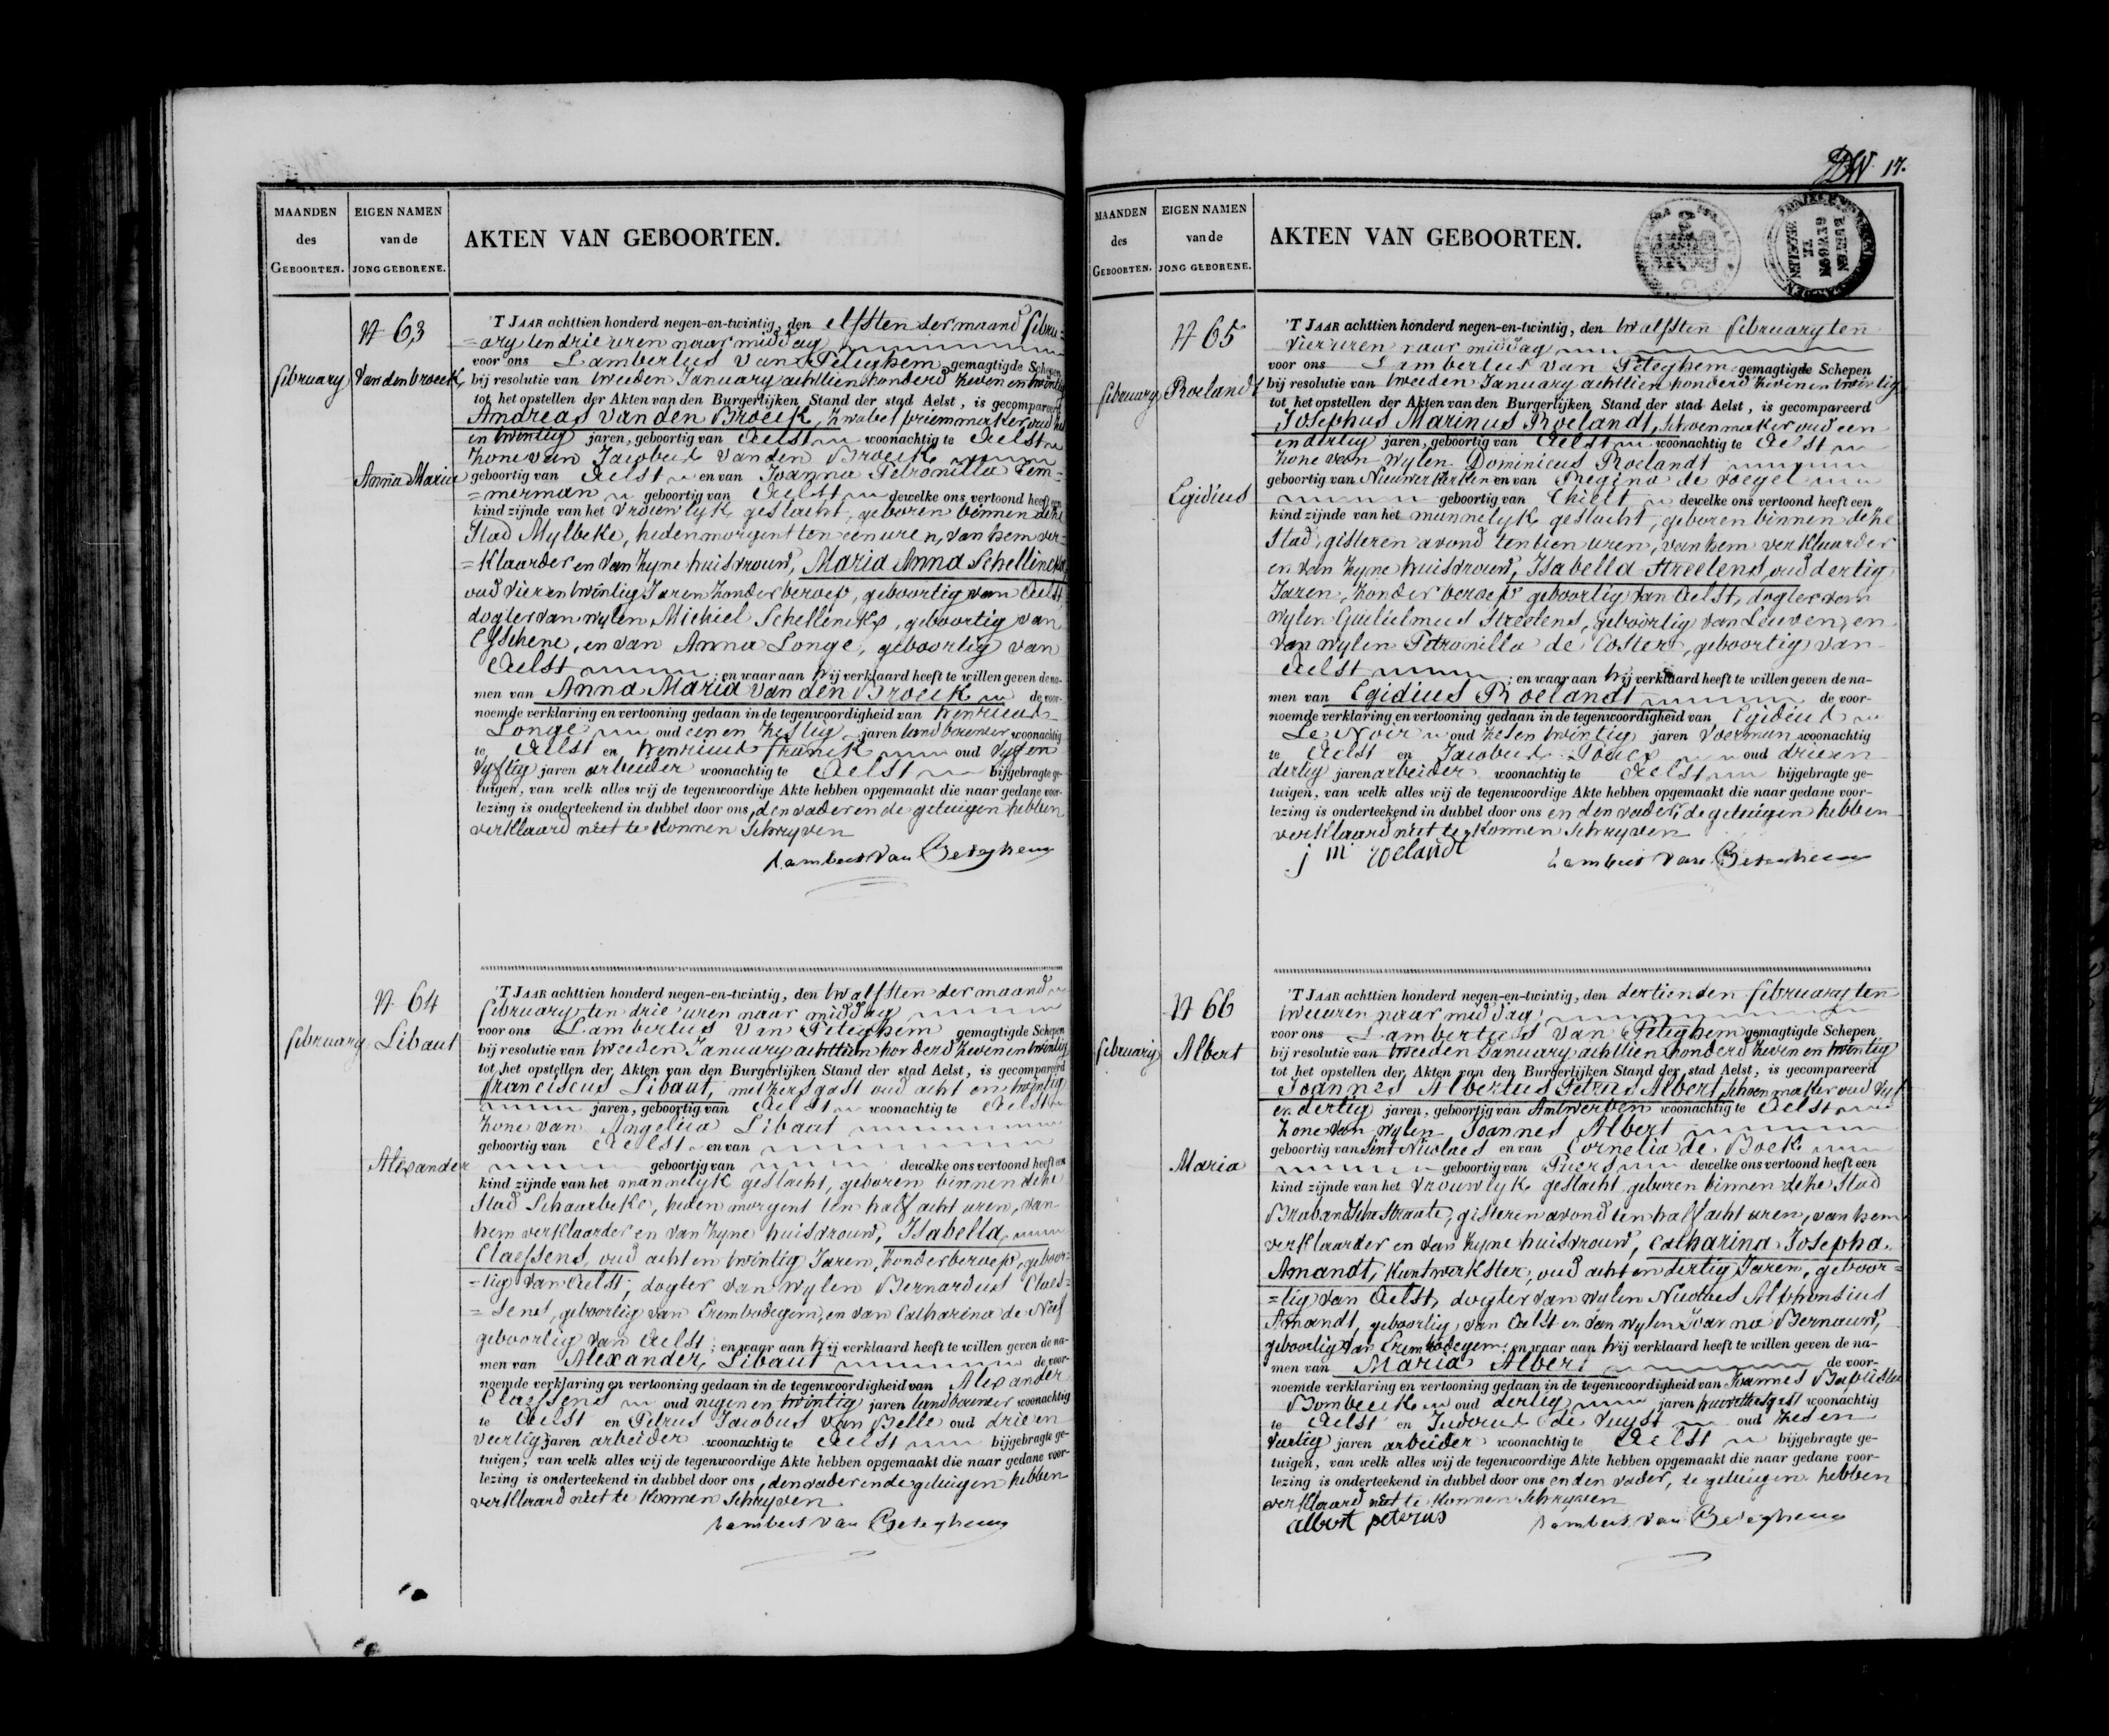 MAANDEN
des
GEBOORTEN.
EIGEN NAMEN
van de
JONG GEBORENE.
AKTEN VAN GEBOORTEN.
N 63
february
Van den broeck
Anna Maria
'T JAAR achttien honderd negen-en-twintig, den elfsten der maand febru=
=ary ten drie uren naar middag
voor ons Lambertus Van Peteghem gemagtigde Schepen
bij resolutie van tweeden January achttien honderd zeven en twintig
tot het opstellen der Akten van den Burgerlijken Stand der stad Aelst, is gecompareerd
Andreas Van den Broeck, zwabel priemmaker oud
en twintig jaren, geboortig van Aelst woonachtig te Aelst
zone van Jacobus Van den Broeck
geboortig van Aelst en van Joanna Petronilla Tem=
=merman geboortig van Aelst dewelke ons vertoond heeft een
kind zijnde van het vrouwlyk geslacht, geboren binnen deze
Stad Mylbeke, heden morgent ten een uren, van hem ver=
=klaarder en van zyne huisvrouw, Maria Anna Schellinckx
oud vier en twintig Jaren zonder beroep, geboortig van Aelst,
dogter van wylen Michiel Schellinckx, geboortig van
Esschene, en van Anna Longé, geboortig van
Aelst ; en waar aan hij verklaard heeft te willen geven de na-
men van Anna Maria Van den Broeck de voor-
noemde verklaring en vertooning gedaan in de tegenwoordigheid van Henricus
Longé oud een en zestig jaren landbouwer woonachtig
te Aelst en Henricus franck oud vyf en
vyftig jaren arbeider woonachtig te Aelst bijgebragte ge-
tuigen, van welk alles wij de tegenwoordige Akte hebben opgemaakt die naar gedane voor-
lezing is onderteekend in dubbel door ons, den vader en de getuigen hebben
verklaard niet te konnen Schryven
Lambert Van Peteghem
N 64
february
Libaut
Alexander
'T JAAR achttien honderd negen-en-twintig, den twalfsten der maand
february ten drie uren naar middag
voor ons Lambertus Van Peteghem gemagtigde Schepen
bij resolutie van tweeden January achttien honderd zeven en twintig
tot het opstellen der Akten van den Burgerlijken Stand der stad Aelst, is gecompareerd
franciscus Libaut, metzers gast oud acht en twintig
jaren, geboortig van Aelst woonachtig te Aelst
zone van Angelica Libaut
geboortig van Aelst en van
geboortig van dewelke ons vertoond heeft een
kind zijnde van het mannelyk geslacht, geboren binnen deze
Stad Schaarbeke, heden morgent ten half acht uren, van
hem verklaarder en van zyne huisvrouw, Isabella
Claessens, oud acht en twintig Jaren, zonder beroep, geboor=
=tig van Aelst, dogter van wylen Bernardus Claes=
=sens, geboortig van Erembodegem, en van Catharina de Nuf
geboortig van Aelst ; en waar aan hij verklaard heeft te willen geven de na-
men van Alexander Libaut de voor-
noemde verklaring en vertooning gedaan in de tegenwoordigheid van Alexander
Claessens oud negen en twintig jaren landbouwer woonachtig
te Aelst en Petrus Jacobus Van Belle oud drie en
veertig jaren arbeider woonachtig te Aelst bijgebragte ge-
tuigen, van welk alles wij de tegenwoordige Akte hebben opgemaakt die naar gedane voor-
lezing is onderteekend in dubbel door ons, den vader en de getuigen hebben
verklaard niet te konnen Schryven
Lambert Van Peteghem
17.
MAANDEN
des
GEBOORTEN.
EIGEN NAMEN
van de
JONG GEBORENE.
AKTEN VAN GEBOORTEN.
N 65
february
Roelandt
Egidius
'T JAAR achttien honderd negen-en-twintig, den twalfsten february ten
vier uren naar middag
voor ons Lambertus Van Peteghem gemagtigde Schepen
bij resolutie van tweeden January achttien honderd zeven en twintig
tot het opstellen der Akten van den Burgerlijken Stand der stad Aelst, is gecompareerd
Josephus Marinus Roelandt, schoenmaker oud een
en dertig jaren, geboortig van Aelst woonachtig te Aelst
zone van wylen Dominicus Roelandt
geboortig van Nieuwerkerken en van Regina de Voegel
geboortig van Thielt dewelke ons vertoond heeft een
kind zijnde van het mannelyk geslacht, geboren binnen deze
Stad, gisteren avond ten tien uren, van hem verklaarder
en van zyne huisvrouw, Isabella Streelens, oud dertig
Jaren, zonder beroep geboortig van Aelst, dogter van
wylen Guilielmus Streelens, geboortig van Leuven, en
van wylen Petronilla de Coster, geboortig van
Aelst ; en waar aan hij verklaard heeft te willen geven de na-
men van Egidius Roelandt de voor-
noemde verklaring en vertooning gedaan in de tegenwoordigheid van Egidius
Le Noir oud zes en twintig jaren Voerman woonachtig
te Aelst en Jacobus oud drie en
dertig jaren arbeider woonachtig te Aelst bijgebragte ge-
tuigen, van welk alles wij de tegenwoordige Akte hebben opgemaakt die naar gedane voor-
lezing is onderteekend in dubbel door ons en den vader, de getuigen hebben
verklaard niet te konnen Schryven
j m roelandt
Lambert Van Peteghem
N 66
february
Albert
Maria
'T JAAR achttien honderd negen-en-twintig, den dertienden february ten
twee uren naar middag
voor ons Lambertus Van Peteghem gemagtigde Schepen
bij resolutie van tweeden January achttien honderd zeven en twintig
tot het opstellen der Akten van den Burgerlijken Stand der stad Aelst, is gecompareerd
Joannes Albertus Petrus Albert, schoenmaker oud vyf
en dertig jaren, geboortig van Antwerpen woonachtig te Aelst
zone van wylen Joannes Albert
geboortig van Sint Nicolaes en van Cornelia de Boek
geboortig van Puers dewelke ons vertoond heeft een
kind zijnde van het vrouwlyk geslacht geboren binnen deze Stad
Brabandsche Straate, gisteren avond ten half acht uren, van hem
verklaarder en van zyne huisvrouw, Catharina Josepha
Amandt, kantwerkster, oud acht en dertig Jaren, geboor=
=tig van Aelst, dogter van wylen Nicolaes Alphonsius
Amandt, geboortig van Aelst en van wylen Joanna Bernauw,
geboortig van Erembodegem ; en waar aan hij verklaard heeft te willen geven de na-
men van Maria Albert de voor-
noemde verklaring en vertooning gedaan in de tegenwoordigheid van Joannes Baptista
Bombeeck oud dertig jaren woonachtig
te Aelst en Judocus de Vuyst oud zes en
veertig jaren arbeider woonachtig te Aelst bijgebragte ge-
tuigen, van welk alles wij de tegenwoordige Akte hebben opgemaakt die naar gedane voor-
lezing is onderteekend in dubbel door ons en den vader, de getuigen hebben
verklaard niet te konnen Schryven
albert peterus
Lambert Van Peteghem